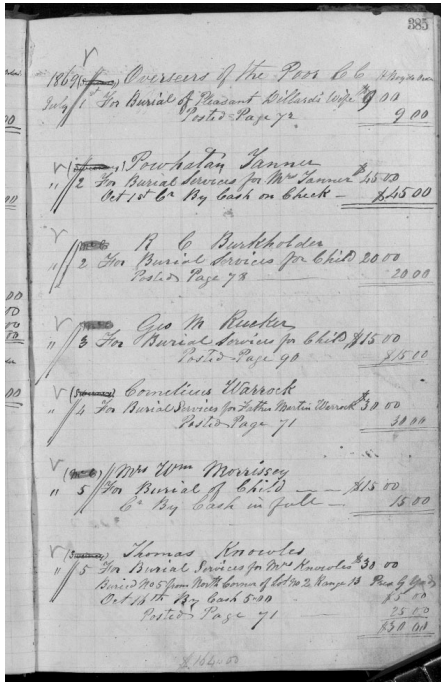 385
1869 Overseers of the Poor C C
July 1st For Burial of Pleasant Dillard's Wife $9 00
Posted Page 72 9 00
Powhatan Tanner
" 2 For Burial Services for Mrs Tanner $45 00
Oct 1st Cr By Cash on Check — $45 00
R C Burkholder
" 2 For Burial Services for Child 20 00
Posted Page 78 — 20 00
Geo M Rucker
" 3 For Burial Services for Child, $15 00
Posted Page 90 $15 00
Cornelius Warrock
" 4 For Burial Services for Father Martin Warrock $30 00
Posted Page 71 30 00
Mrs Wm Morrissey
" 5 For Burial of Child — — $15 00
Cr By Cash in full — 15 00
Thomas Knowles
" 5 For Burial Services for Mrs Knowles $30 00
Buried No 5 from North Corner of Lot No 2 Range 13
Oct 16th By Cash 5.00 $5 00
Posted Page 71 25 00
$30 00
$164.00